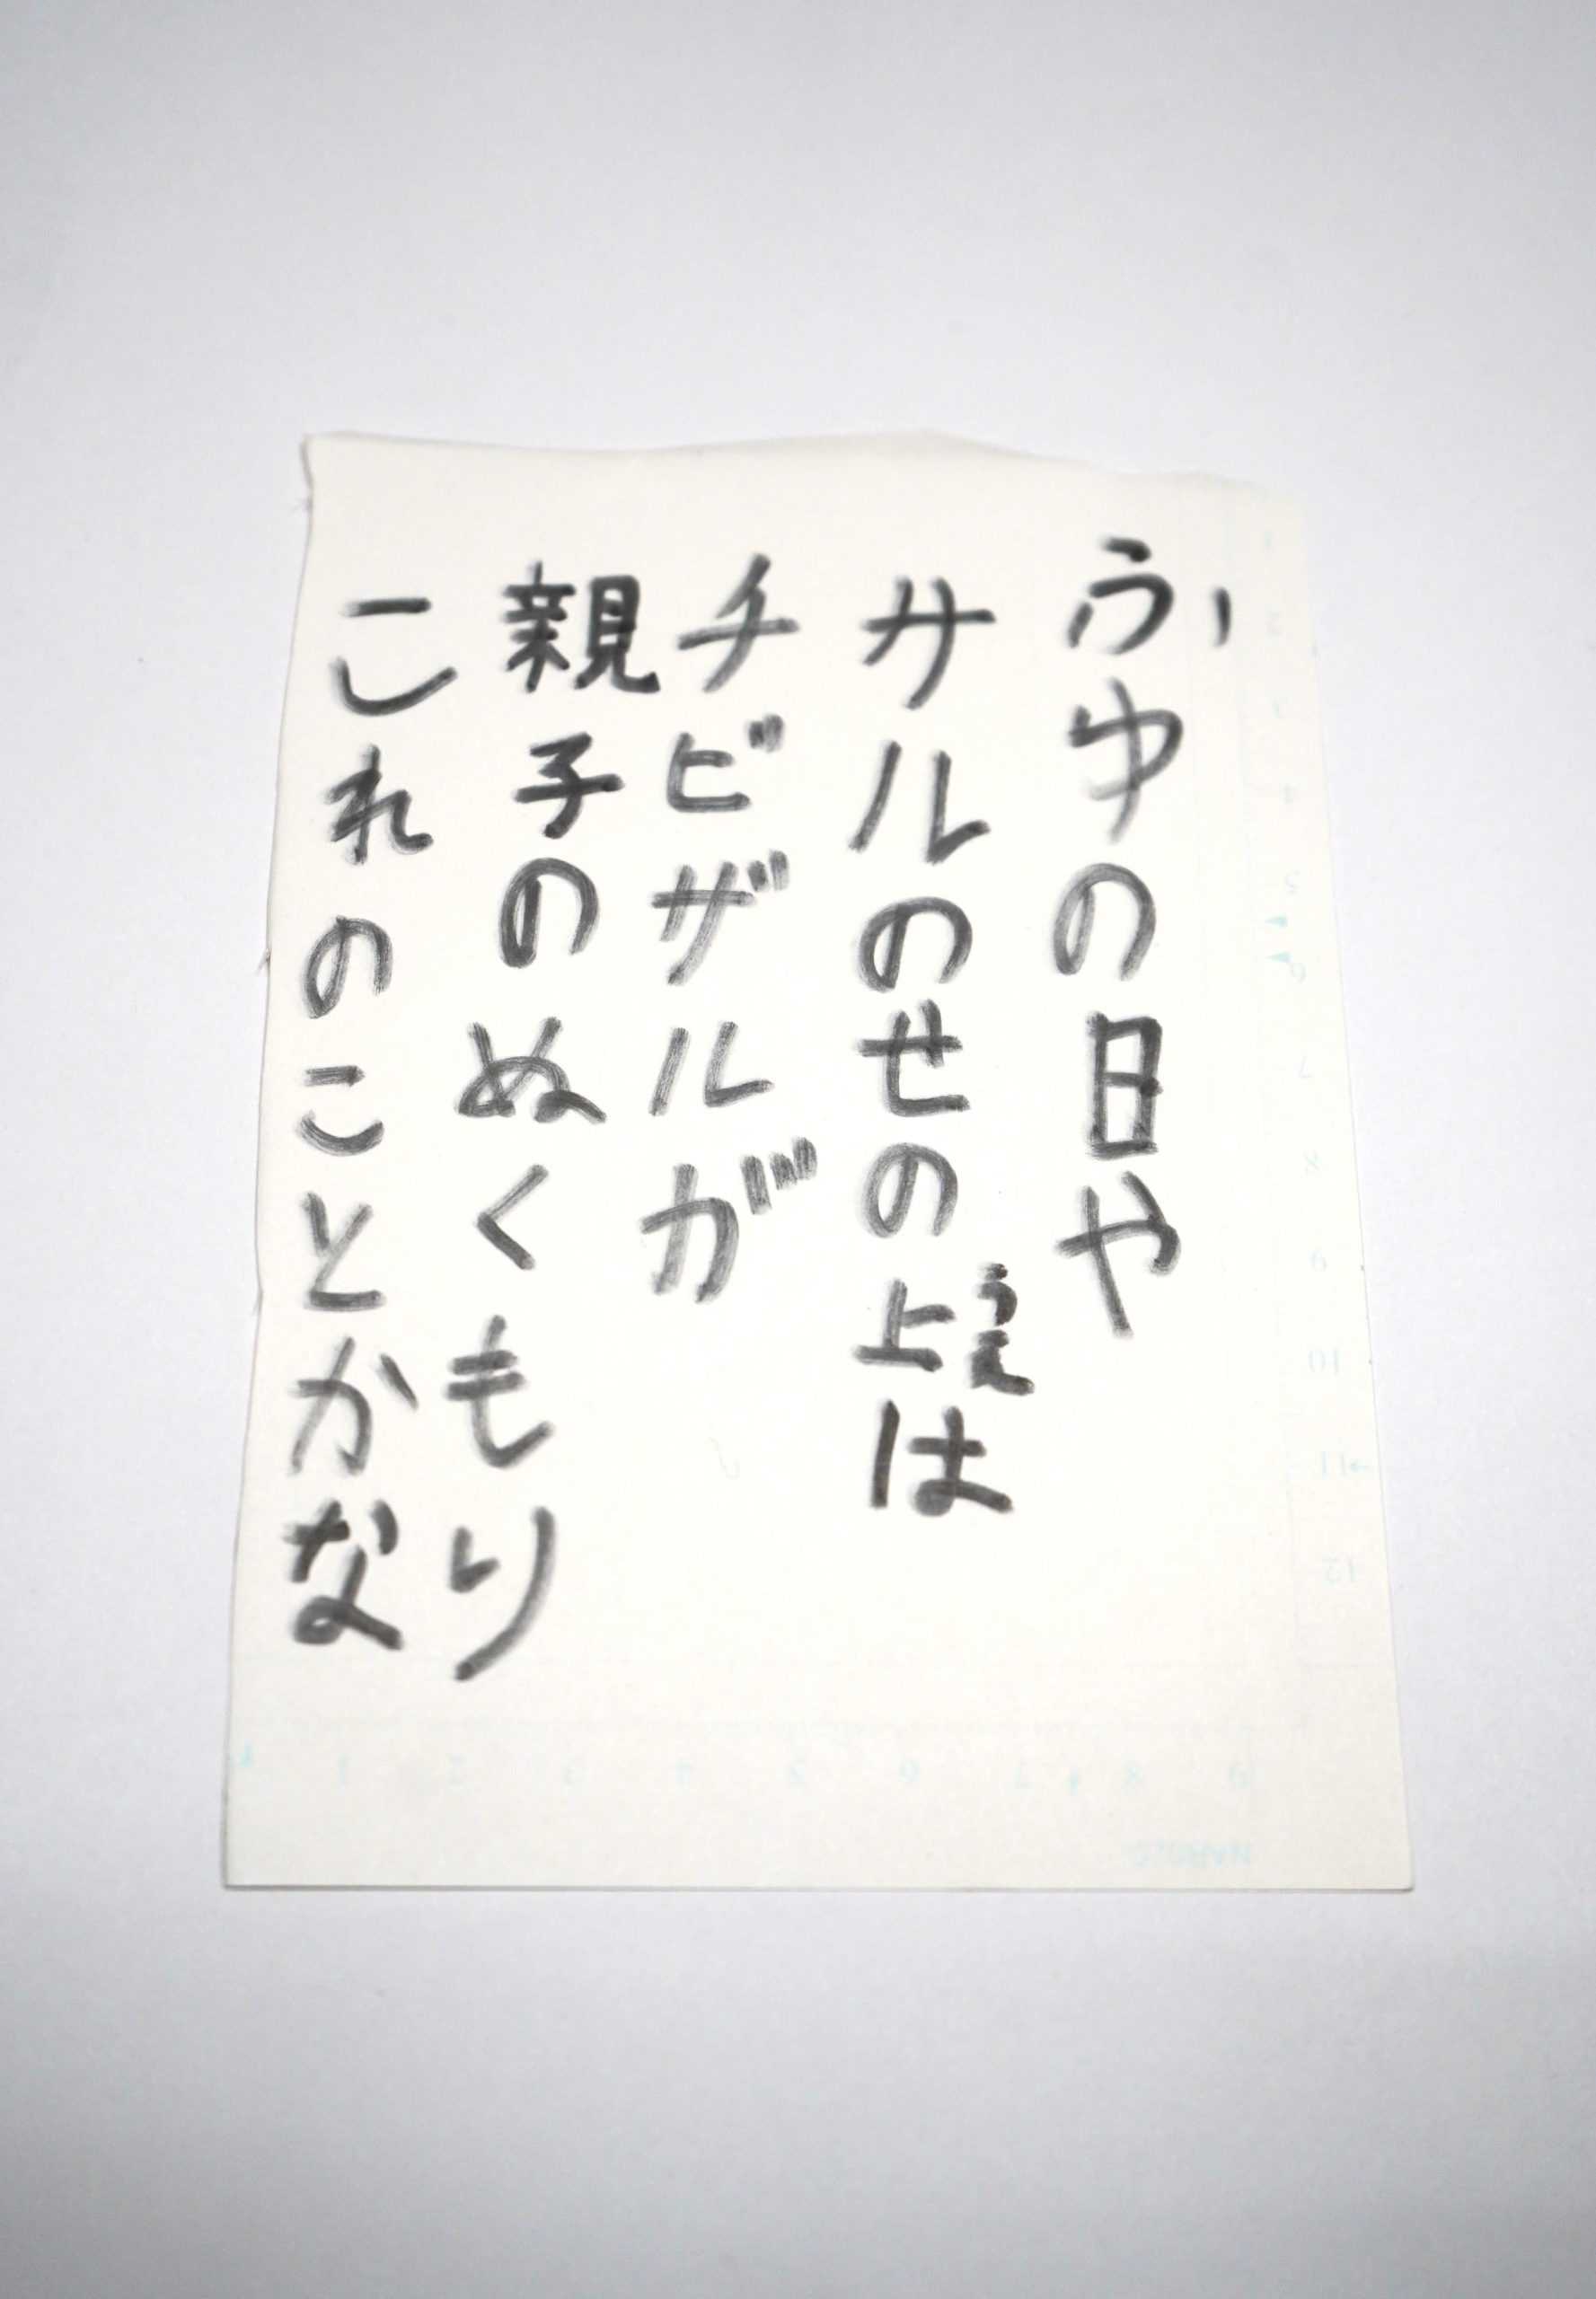 ふゆの日や
サルのせの上は
うえ
チビザルが
親子のぬくもり
これのことかな